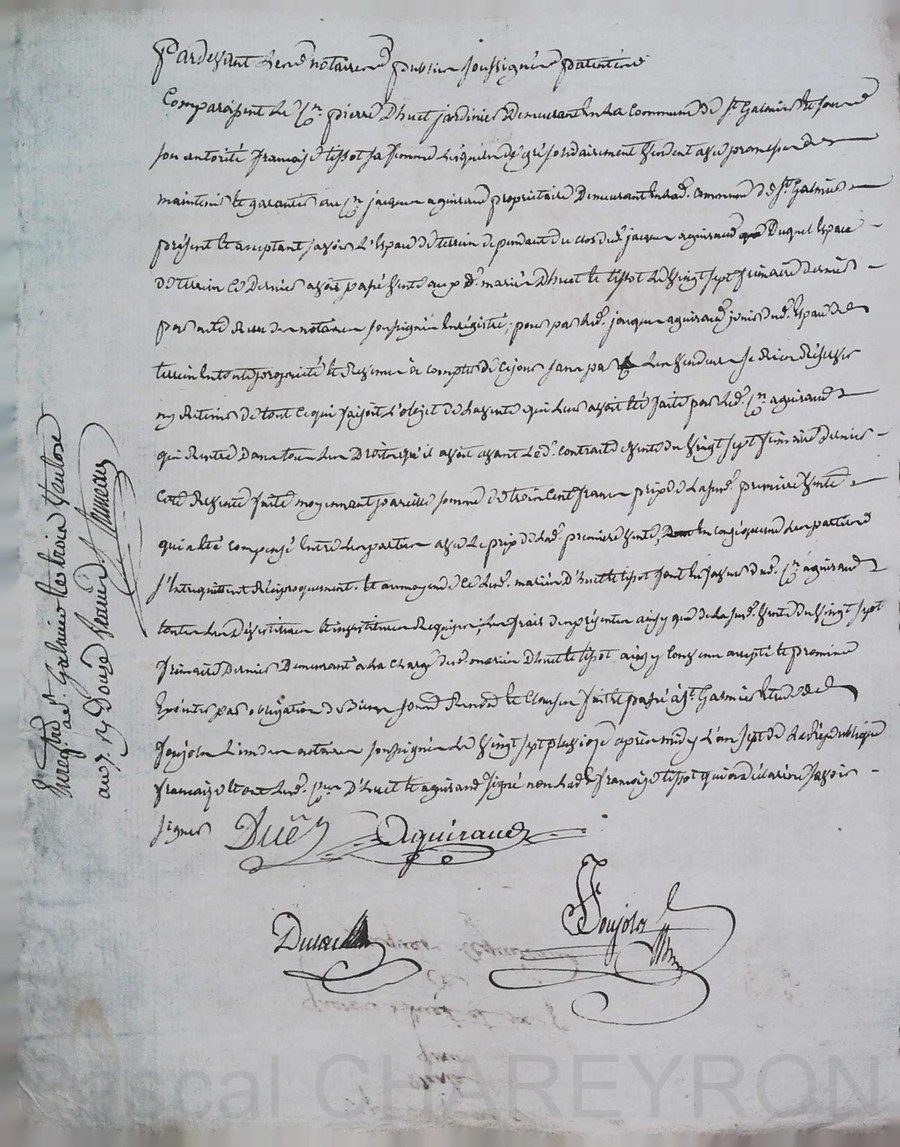 Pardevant les notaires publics soussignés patentés
Comparoissent le Cn. pierre Dhuet jardinier Demeurant en la Commune de St. Galmier et sous
son autorité françoise tissot sa femme lesquels de gré solidairement vendent avec promesse de
maintenir et garantir au Cn. jacques aguiraud propriétaire Demeurant en lad. commune de St. Galmier
présent et acceptant savoir l'espace de terrein dependant du clos dud. jacques aguiraud Duquel espace
de terrein ce Dernier avoit passé vente auxd. mariés Dhuet et tissot le vingt sept frimaire dernier
par acte reçu des notaires soussignés Enregistré, pour par led. jacques aguiraud jouir dud. Espace de
terrein en toute propriété et à compter de ce jour sans par les vendeurs se rien Réserver
ny Retenir de tout ce qui faisoit l'objet de la vente qui leur avoit été faite par led. Cn. aguiraud
qui Rentre dans tous les Droits qu'il avoit avant led. contrat de vente du vingt sept frimaire dernier
Cette vente faite moyennant pareille somme de trois Cent francs prix de la sud. premiere vente
qui a été compensé Entre les parties avec le prix de lad. premiere vente, En conséquence les parties
s'Entrequittent Réciproquement. Et au moyen de ce lesd. mariés D'huet et tissot font en faveur dud. Cn. aguiraud
toutes les dévestitures et investitures Requises, les frais des présentes ainsy que de la sud. vente du vingt sept
frimaire Dernier Demeurant à la charge desd. mariés Dhuet et tissot ainsy Convenu accepté et promis
par obligation de Biens soumis Renoncé et Clauses fait et passé à St. Galmier Etude de
Joujola l'un des notaires soussignés le vingt sept pluviose après midy l'an sept de la République
françoise Et ont led. pierre D'huet et aguiraud signé non lad. françoise tissot qui a déclaré ne savoir
signer Duët Aguiraud
Joujola
Enregistré a St. Galmier le trois Ventose
an 7. Rç Douze francs
Pascal CHAREYRON